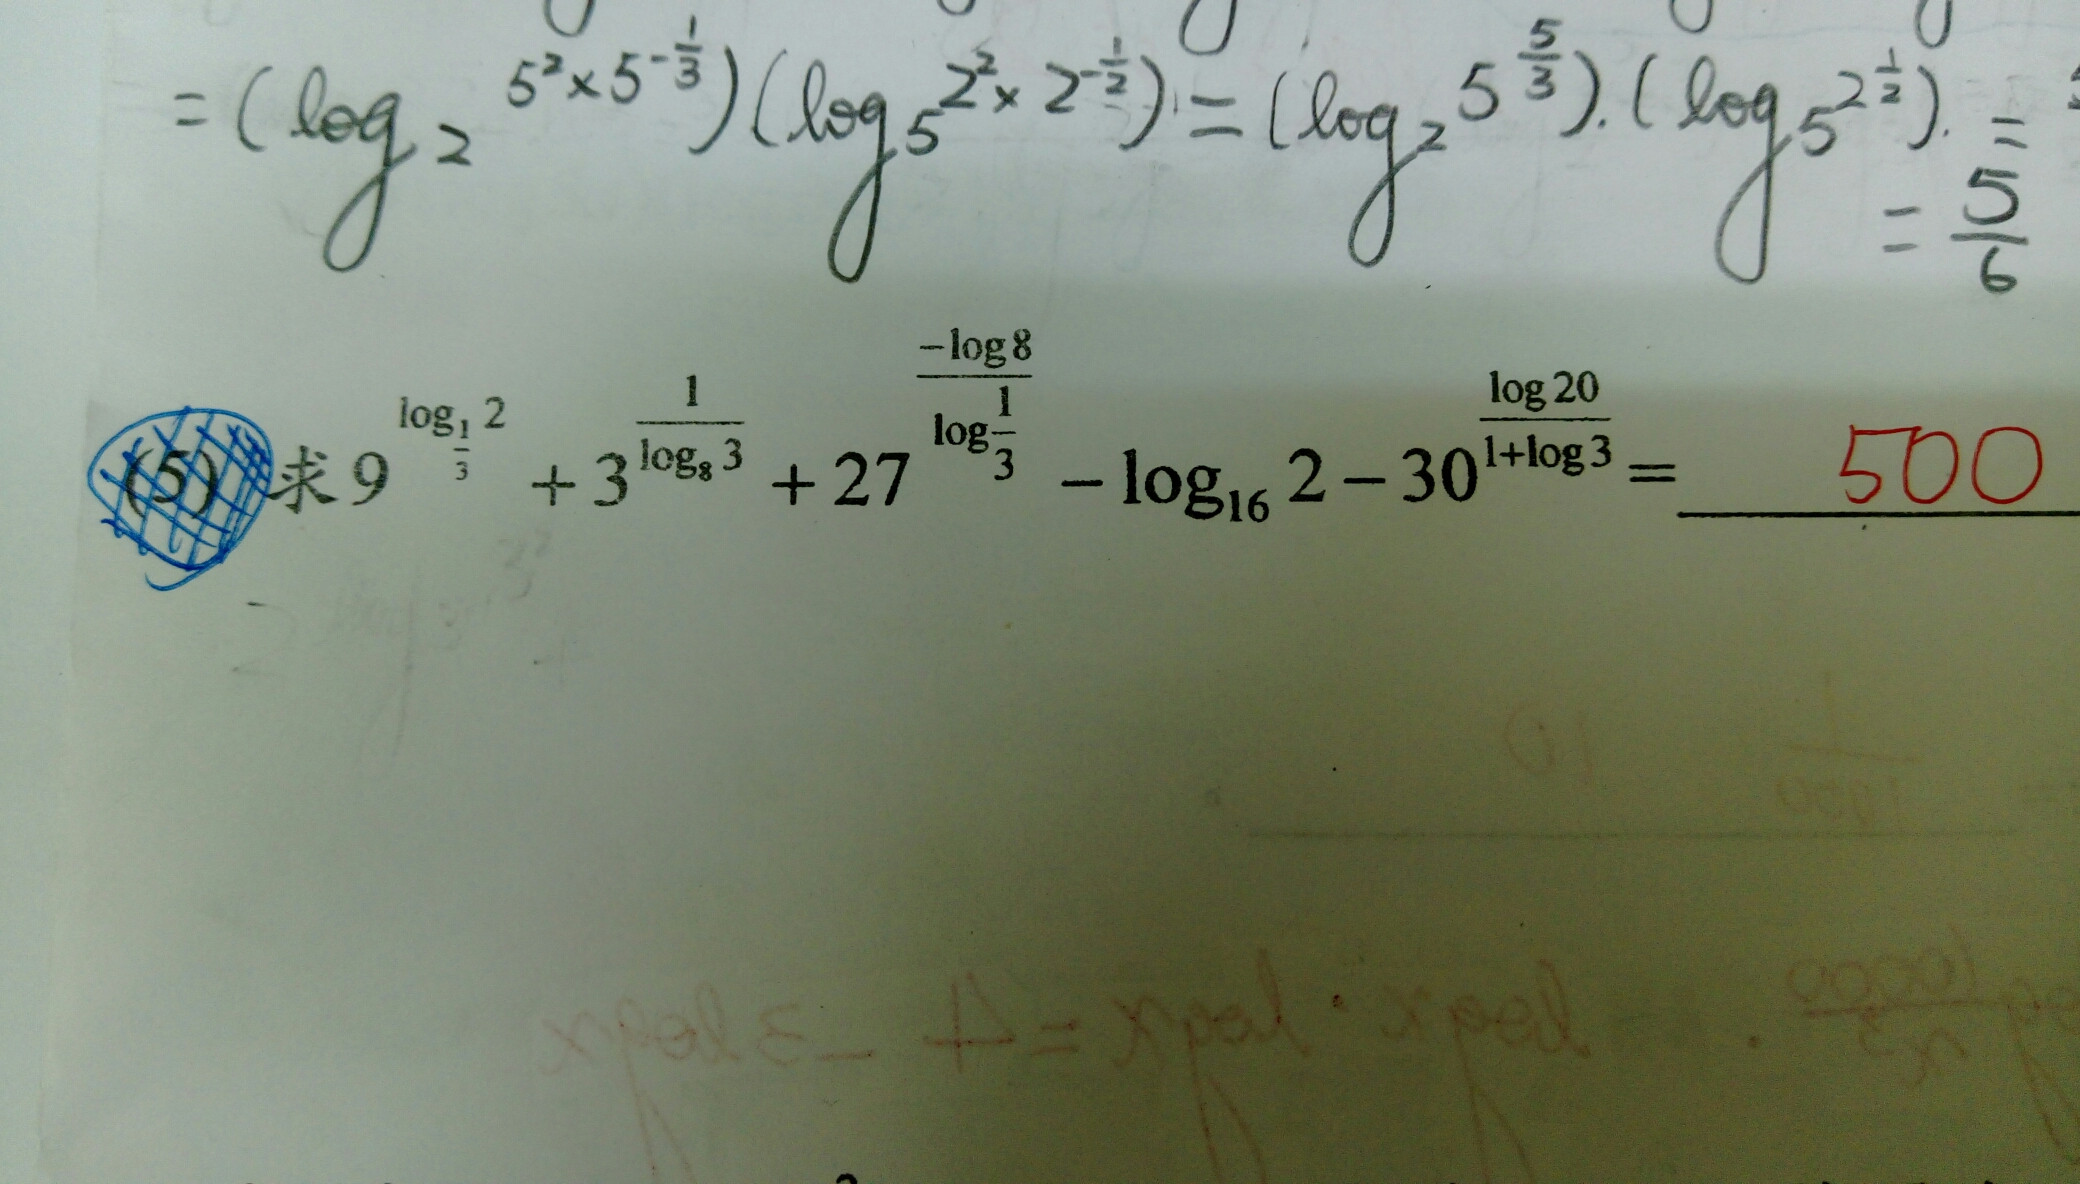 = (log₂ 5²×5^{-1/3})(log₅ 2²×2^{-1/2}) = (log₂ 5^{5/3}).(log₅ 2^{1/2}). =
= 5/6
(5) 求 9^{log_{1/3} 2} + 3^{1/log₈ 3} + 27^{-log 8/log 1/3} - log₁₆ 2 - 30^{log 20/1+log 3} = 500